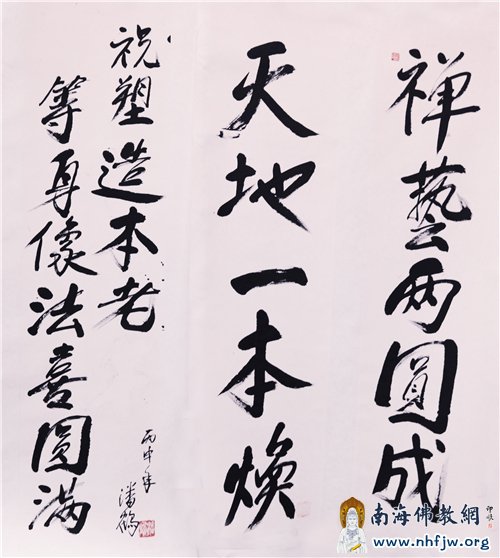 禅藝两圓成
天地一本焕
祝塑造本老
等身像法喜圓满
丙申年
潘鶴
南海佛教網
www.nhfjw.org